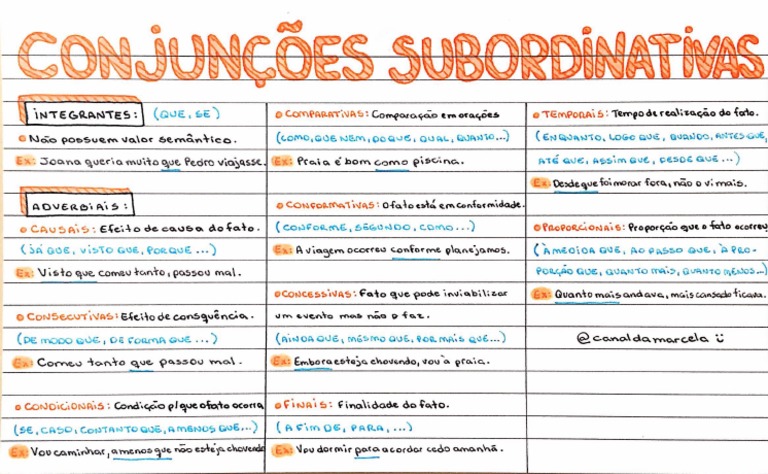 CONJUNÇÕES SUBORDINATIVAS
INTEGRANTES: (QUE, SE)
Não possuem valor semântico.
Ex: Joana queria muito que Pedro viajasse.
ADVERBIAIS:
CAUSAIS: Efeito de causa do fato.
(JÁ QUE, VISTO QUE, PORQUE ...)
Ex: Visto que comeu tanto, passou mal.
CONSECUTIVAS: Efeito de consquência.
(DE MODO QUE, DE FORMA QUE ...)
Ex: Comeu tanto que passou mal.
CONDICIONAIS: Condição p/ que o fato ocorra
(SE, CASO, CONTANTO QUE, A MENOS QUE ...)
Ex: Vou caminhar, a menos que não esteja chovendo
COMPARATIVAS: Comparação em orações
(COMO, QUE NEM, DO QUE, QUAL, QUANTO...)
Ex: Praia é bom como piscina.
CONFORMATIVAS: O fato está em conformidade.
(CONFORME, SEGUNDO, COMO...)
Ex: A viagem ocorreu conforme planejamos.
CONCESSIVAS: Fato que pode inviabilizar
um evento mas não o faz.
(AINDA QUE, MESMO QUE, POR MAIS QUE...)
Ex: Embora esteja chovendo, vou à praia.
FINAIS: Finalidade do fato.
(A FIM DE, PARA, ...)
Ex: Vou dormir para acordar cedo amanhã.
TEMPORAIS: Tempo de realização do fato.
(ENQUANTO, LOGO QUE, QUANDO, ANTES QUE,
ATÉ QUE, ASSIM QUE, DESDE QUE ...)
Ex: Desde que foi morar fora, não o vi mais.
PROPORCIONAIS: Proporção que o fato ocorreu
(À MEDIDA QUE, AO PASSO QUE, À PRO-
PORÇÃO QUE, QUANTO MAIS, QUANTO MENOS...)
Ex: Quanto mais andava, mais cansado ficava.
@canaldamarcela